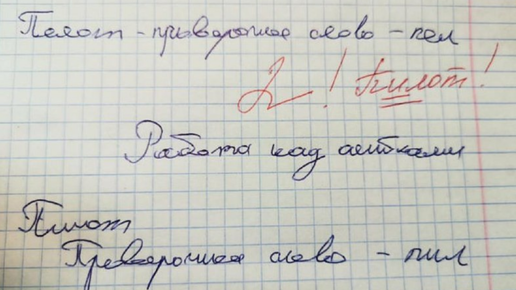 Пелот - проверочное слово - пел
2! Пилот!
Работа над ошибками
Пилот
Проверочное слово - пил